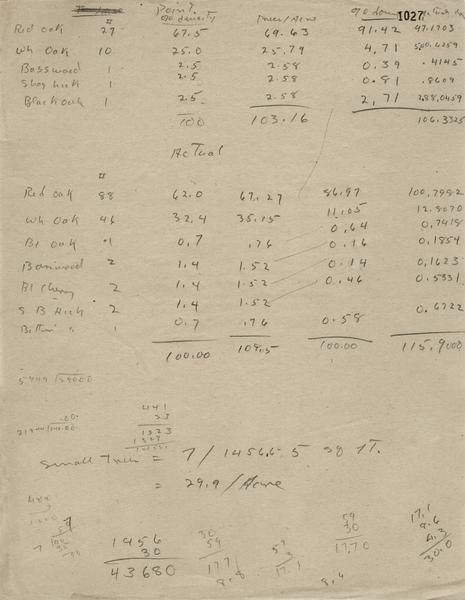 1027
Point
# % density Trees/Acre % dom
Red oak 27 67.5 69.63 91.42 97.1703
Wh Oak 10 25.0 25.79 4.71
Basswood 1 2.5 2.58 0.39 .4145
Shag hick 1 2.5 2.58 0.81 .8609
Black oak 1 2.5 2.58 2.71
100 103.16 106.3325
Actual
#
Red oak 88 62.0 67.27 86.97 100.7982
Wh Oak 46 32.4 35.15 11.105 12.8070
Bl oak 1 0.7 .76 0.64 0.7418
Basswood 2 1.4 1.52 0.16 0.1854
Bl Cherry 2 1.4 1.52 0.14 0.1623
S B Hick 2 1.4 1.52 0.46 0.5331
Bitter " 1 0.7 .76 0.58 0.6722
100.00 108.5 100.00 115.9000
441
1323
Small Tree = 7/1456.5 sq ft.
= 29.9/Acre
1456
30
43680
30
59
17.7
59
.3
17.7
59
30
17.70
17.1
9.6
4.3
30.0